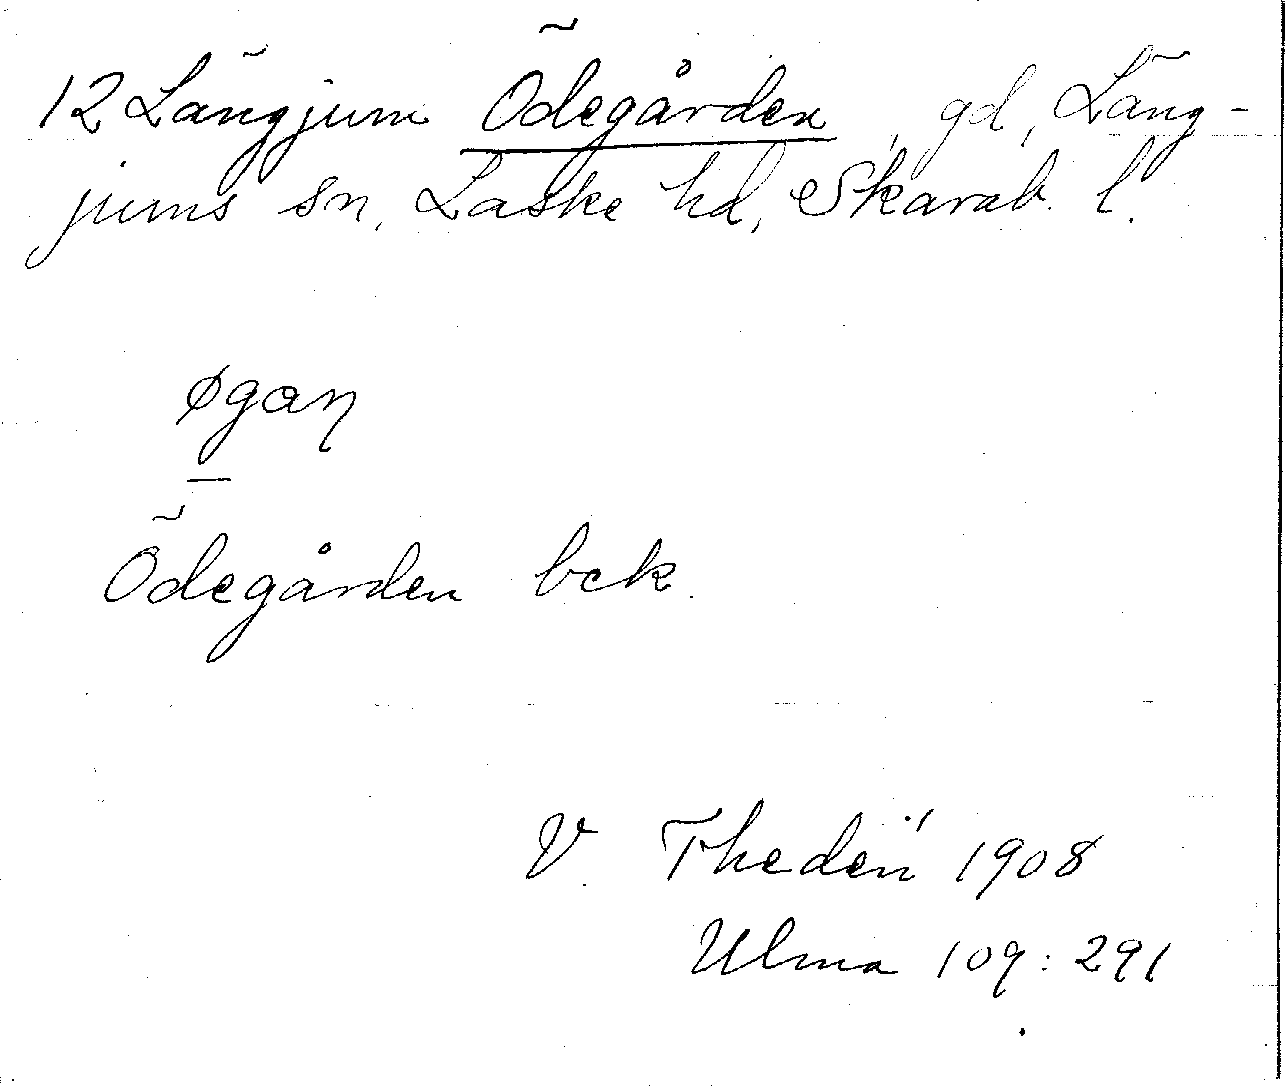 12 Längjum Ödegården, gd, Läng-
jums sn, Laske hd, Skarab. l.
øgaɳ
Ödegården bek.
V. Thedén 1908
Ulma 109:291